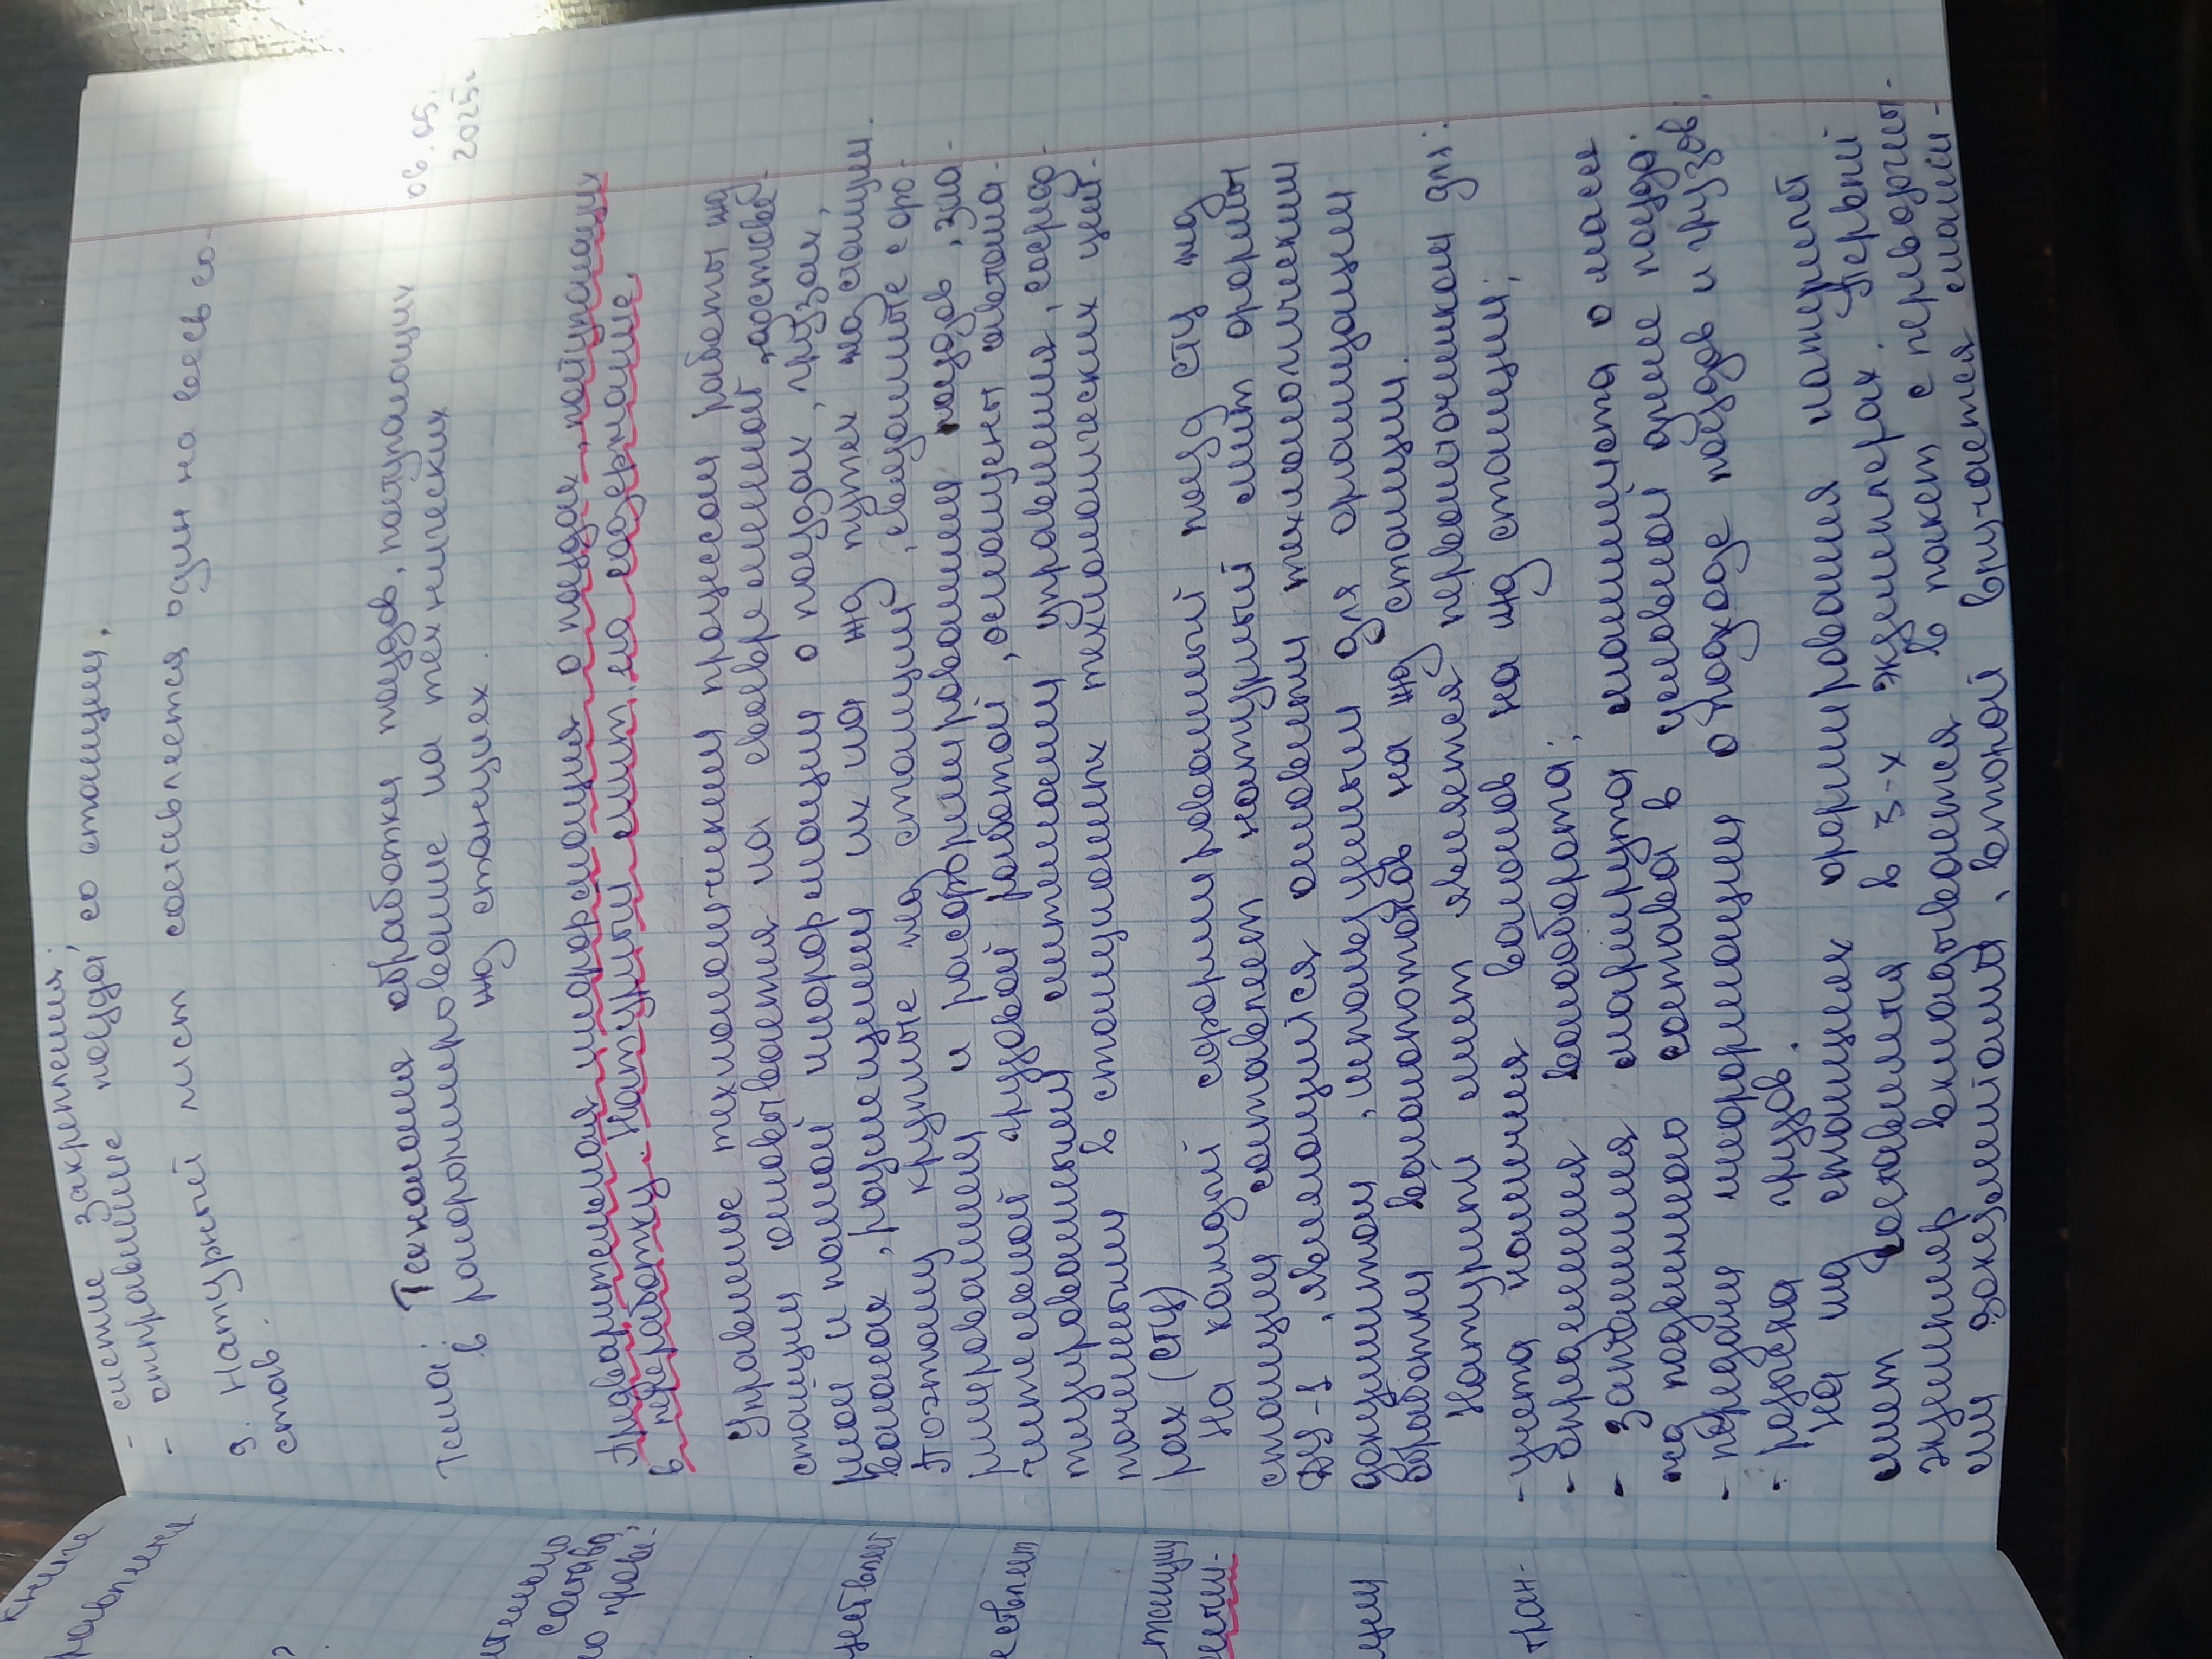 - снятие закрепления;
- отправление поезда со станции.
9. Натурный лист составляется один на весь со-
став.
06.05.
2025г.
Тема: Технология обработки поездов, поступающих
в расформирование на технических
жд станциях.
Предварительная информация о поездах, поступающих
в переработку. Натурный лист, его содержание.
Управление технологическим процессом работы жд
станции основывается на своевременной, достовер-
ной и полной информации о поездах, грузах,
вагонах, размещении их на жд путях жд станции.
Поэтому крупные жд станции, связанные с фор-
мированием и расформированием поездов, зна-
чительной грузовой работой, оснащены автома-
тизированными системами управления, сосредо-
точенными в станционных технологических цент-
рах (СТЦ)
На каждый сформированный поезд СТЦ жд
станции составляет натурный лист формы
ДУ-1, являющийся основным технологическим
документом, используемым для организации
обработки вагонопотоков на жд станции.
Натурный лист является первоисточником для:
- учета наличия вагонов на жд станции;
- определения вагонооборота;
- заполнения маршрута машиниста о массе
жд подвижного состава и условной длине поезда;
- передачи информации о подходе поездов и грузов;
- розыска грузов.
На жд станциях формирования натурный
лист составляется в 3-х экземплярах. Первый
экземпляр вкладывается в пакет с перевозочны-
ми документами, второй вручается маши-
книге
равления
?
ительно
состава
о прави-
ществляет
ествляет
танции
ции
тран-